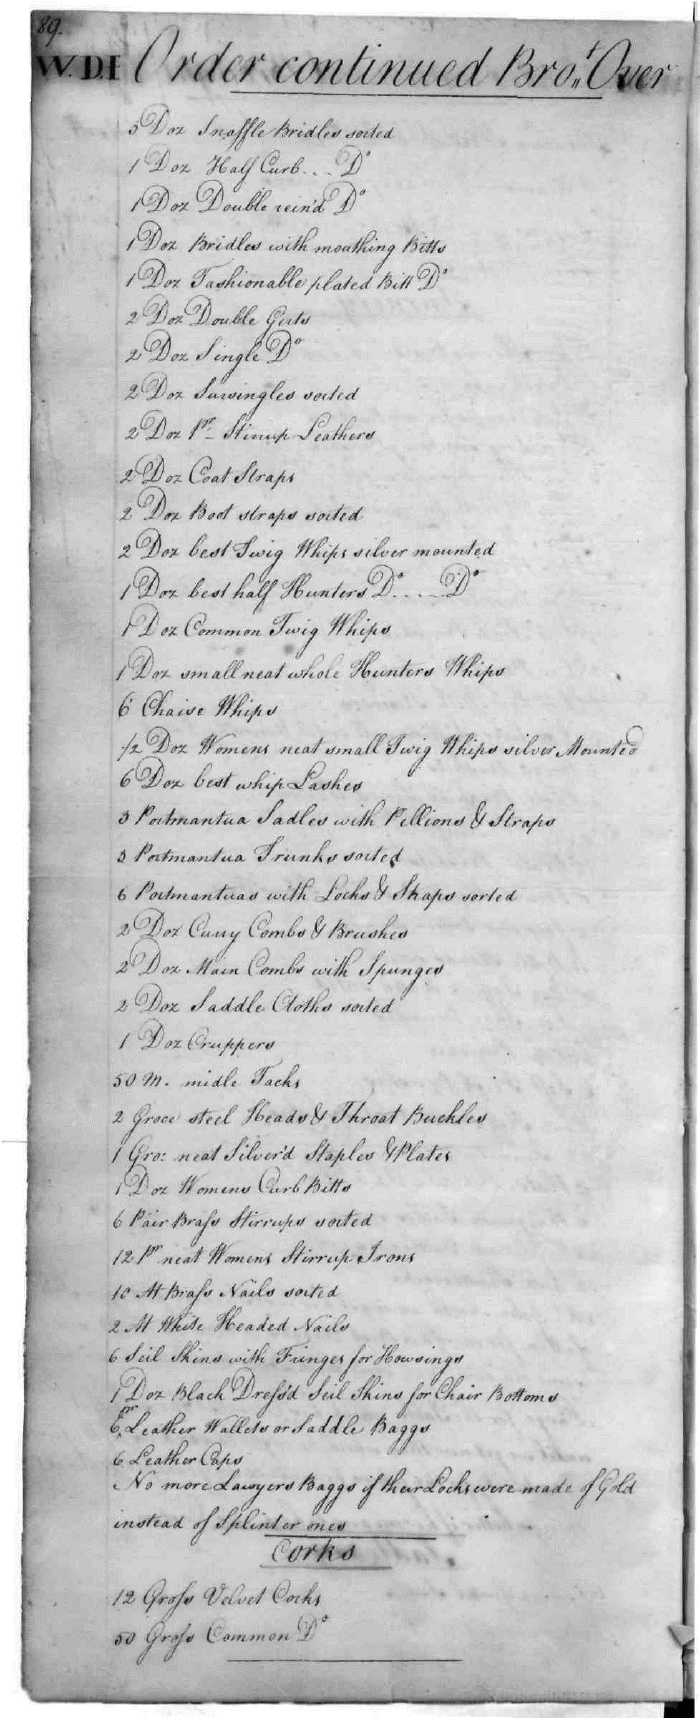 89.
W.D.I Order continued Bro.t Over
3 Doz Snaffle Bridles sorted
1 Doz Half Curb... Do
1 Doz Double rein'd Do
1 Doz Bridles with mouthing Bitts
1 Doz Fashionable plated Bitt Do
2 Doz Double Girts
2 Doz Single Do
2 Doz Sursingles sorted
2 Doz Pr Stirrup Leathers
2 Doz Coat Straps
2 Doz Boot straps sorted
2 Doz best Twig Whips silver mounted
1 Doz best half Hunters Do.....Do
1 Doz Common Twig Whips
1 Doz small neat whole Hunters Whips
6 Chaise Whips
1/2 Doz Womens neat small Twig Whips silver Mounted
6 Doz best whip Lashes
3 Portmantua Sadles with Pellions & Straps
3 Portmantua Trunks sorted
6 Portmantuas with Locks & Straps sorted
2 Doz Curry Combs & Brushes
2 Doz Main Combs with Spunges
2 Doz Saddle Cloths sorted
1 Doz Cruppers
50 M. midle Tacks
2 Groce steel Heads & Throat Buckles
1 Gro: neat Silver'd Staples & Plates
1 Doz Womens Curb Bitts
6 Pair Brass Stirrups sorted
12 Pr neat Womens Stirrup Irons
10 M Brass Nails sorted
2 M White Headed Nails
6 Seil Skins with Fringes for Howsings
1 Doz Black Dress'd Seil Skins for Chair Bottoms
6 pr Leather Wallets or Saddle Baggs
6 Leather Caps
No more Lawyers Baggs if their Locks were made of Gold
instead of Splinter ones
Corks
12 Gross Velvet Corks
50 Gross Common Do